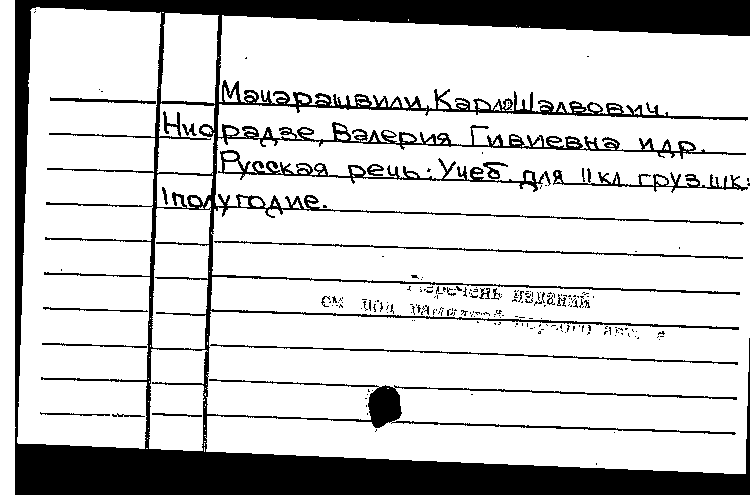 Мачарашвили, Карло Шалвович.
Ниорадзе, Валерия Гивиевна и др.
Русская речь: Учеб. для II кл. груз. шк:
I полугодие.
Перечень изданий
см под фамилией первого авт.